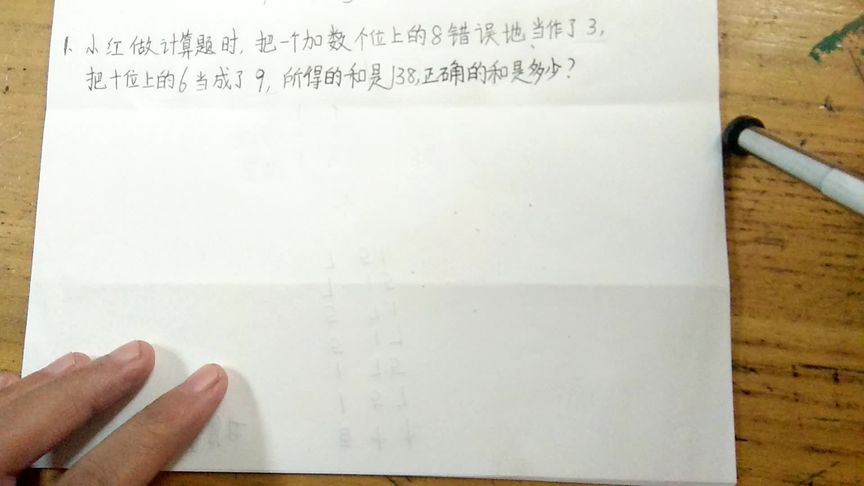 1. 小红做计算题时,把一个加数个位上的8错误地当作了3,
把十位上的6当成了9,所得的和是138,正确的和是多少?